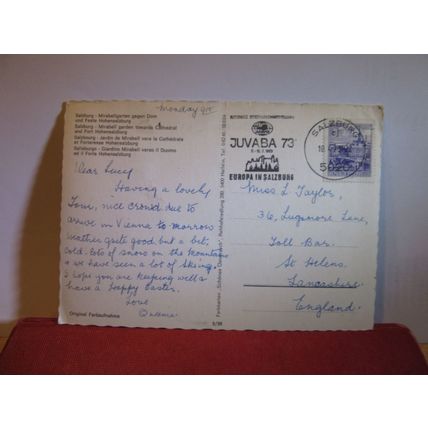 Monday
Salzburg - Mirabellgarten gegen Dom
und Feste Hohensalzburg
Salzburg - Mirabell garden towards Cathedral
and Fort Hohensalzburg
Salzbourg - Jardin de Mirabell vers la Cathédrale
et Forteresse Hohensalzburg
Salisburgo - Giardino Mirabell verso il Duomo
ed il Forte Hohensalzburg
Dear Lucy
Having a lovely
Tour, nice crowd due to
arrive in Vienna to-morrow
weather quite good but a bit
cold. lots of snow on the mountains
& we have seen a lot of skiing.
I hope you are keeping well &
have a Happy Easter.
Love
Original Farbaufnahme
5/98
JUVABA 73
EUROPA IN SALZBURG
SALZBURG
Miss L Taylor,
36, Lugsmore Lane,
Toll Bar.
St Helens.
Lancashire.
England.